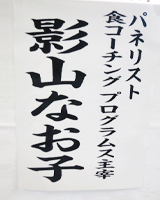 パネリスト
食コーチングプログラムス主宰
影山なお子